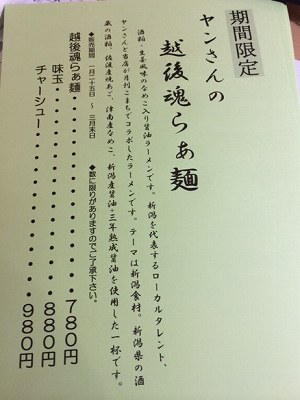 期間限定
ヤンさんの
越後魂らぁ麺
酒粕・生姜風味のなめこ入り醤油ラーメンです。新潟を代表するローカルタレント、
ヤンさんと当店が月刊こまちでコラボしたラーメンです。テーマは新潟食材。新潟県の酒
蔵の酒粕、佐渡産焼あご、津南産なめこ、新潟産醤油・三年熟成醤油を使用した一杯です。
◆販売期間 一月二十五日 〜 三月末日 ◆数に限りがありますのでご了承下さい。
越後魂らぁ麺・・・・・・・・780円
味玉・・・・・・・・・・・880円
チャーシュー・・・・・・・・980円